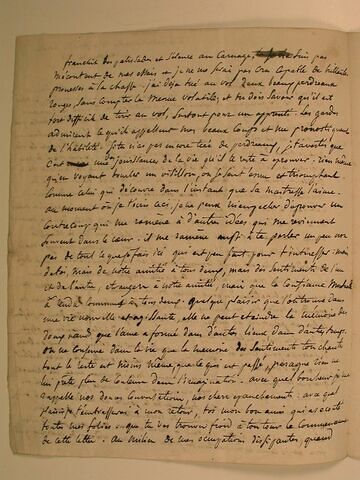 franchit des palissades et s'élance au carnage, suis pas
mécontent de mes essais et je ne me serai pas cru capable de brillantes
prouesses à la chasse. j'ai déjà tué au vol deux beaux perdreaux
rouges, sans compter le menue volatile, et tu dois savoir qu'il est
fort difficile de tirer au vol, surtout pour un apprenti. Les gardes
admirent ce qu'ils appellent mes beaux coups et me pronostiquent
de l'habileté. je n'ai pas encore tué de perdreaux, j'avoue que
c'est une jouissance de la vie qu'il te reste à éprouver. rien même
qu'en voyant tomber un oisillon, on se sent ému et triomphant
comme celui qui découvre dans l'instant que sa maîtresse l'aime.
au moment où je t'écris ceci, je ne peux m'empêcher d'éprouver un
contrecoup qui me ramène à d'autres idées, qui me reviennent
souvent dans le cœur. il me ramène aussi à te parler un peu non
pas de tout ce que je fais ici qui est peu fait pour t'intéresser: mais
de toi, mais de notre amitié à tous deux, mais des sentiments de l'un
et de l'autre, étrangers à notre amitié, mais que la confiance
a rendu communs à tous deux. quelque plaisir que l'on trouve dans
une vie nouvelle et agissante, elle ne peut éteindre la mémoire des
doux nœuds que l'âme a formés dans d'autres lieux, dans d'autres temps.
on ne conserve dans la vie que la mémoire des sentiments touchants
tout le reste est moins même que ce qui est passé, parce que rien ne
lui prête plus de couleur dans l'imagination. avec quel bonheur je me
rappelle nos douces conversations, nos chers épanchements. avec quel
plaisir j'embrasserai à mon retour, toi mon bon ami qui as écouté
toutes mes folies. que tu vas trouver froid à ton tour le commencement
de cette lettre. Au milieu de mes occupations dissipantes, quand